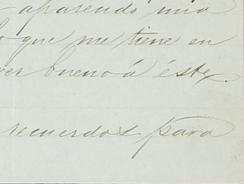 aparendo mia
o que me tiene en
ver bueno á éste
recuerdos para